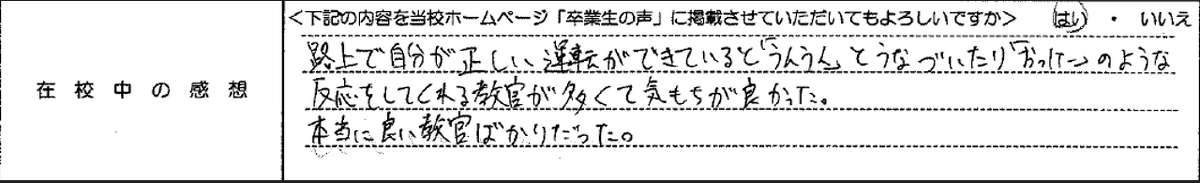 <下記の内容を当校ホームページ「卒業生の声」に掲載させていただいてもよろしいですか> はい ・ いいえ
在校中の感想
路上で自分が正しい運転ができていると「うんうん」とうなづいたり「おっけー」のような
反応をしてくれる教官が多くて気もちが良かった。
本当に良い教官ばかりだった。